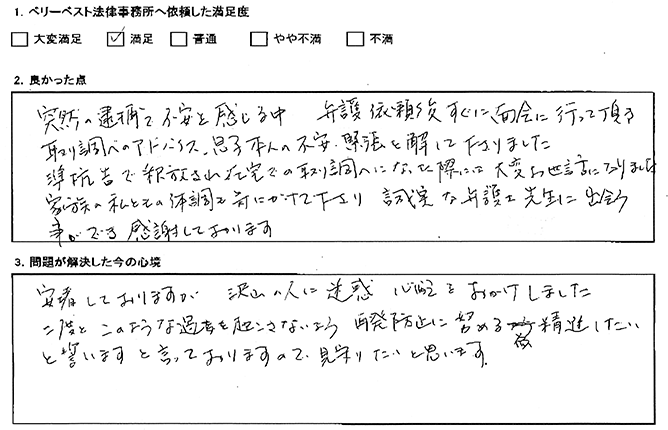 1. ベリーベスト法律事務所へ依頼した満足度
□ 大変満足 ☑ 満足 □ 普通 □ やや不満 □ 不満
2. 良かった点
突然の逮捕で不安を感じる中 弁護依頼後すぐに面会に行って頂き
取り調べへのアドバイス、息子本人の不安、緊張を解して下さりました
準抗告で釈放され在宅での取り調べになった際には大変お世話になりました
家族の私たちの体調も気にかけて下さり 誠実な弁護士先生に出会う
事ができ感謝しております
3. 問題が解決した今の心境
安堵しておりますが 沢山の人に迷惑 心配をおかけしました
二度とこのような過ちを起こさないよう 再発防止に努める 精進したい
と誓いますと言っておりますので、見守りたいと思います。